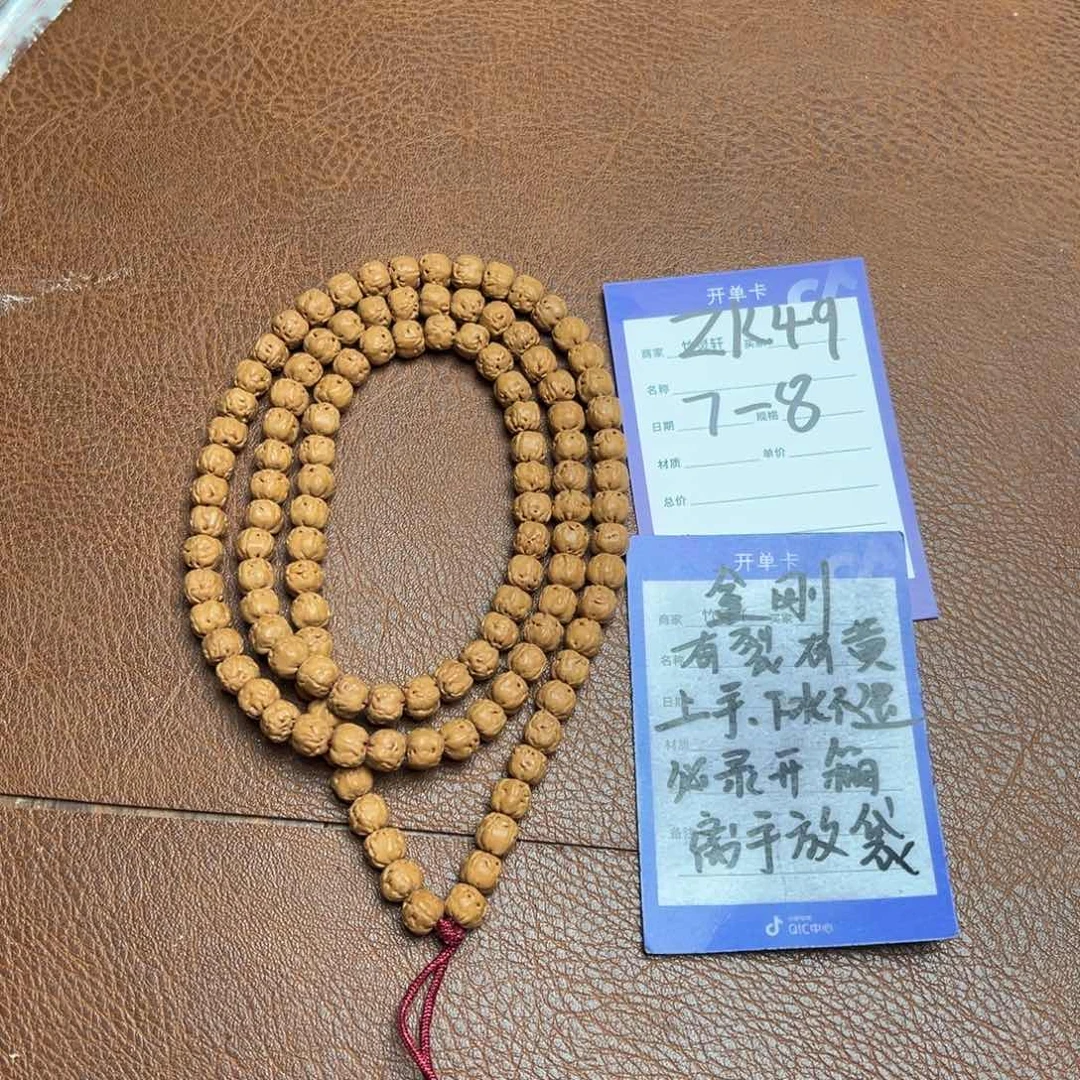 开单卡
ZK49
商家 竹 轩
名称
7-8
日期 规格
材质 单价
总价
开单卡
金刚
商家 竹
有裂有黄
名称
上手、下水不退
材质
必录开箱
离手放袋
QIC中心